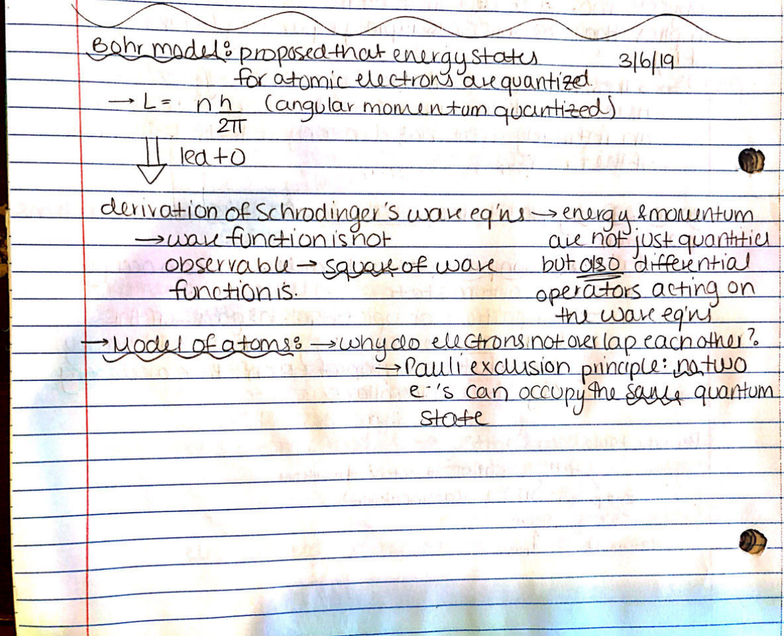 Bohr model: proposed that energy states 3/6/19
for atomic electrons are quantized.
→ L = nh/2π (angular momentum quantized)
⇓ led to
derivation of Schrodinger's wave eq'ns → energy & momentum
→ wave function is not are not just quantities
observable → square of wave but also differential
function is. operators acting on
the wave eq'ns
→ Model of atoms: → why do electrons not overlap each other?
→ Pauli exclusion principle: no two
e⁻'s can occupy the same quantum
state